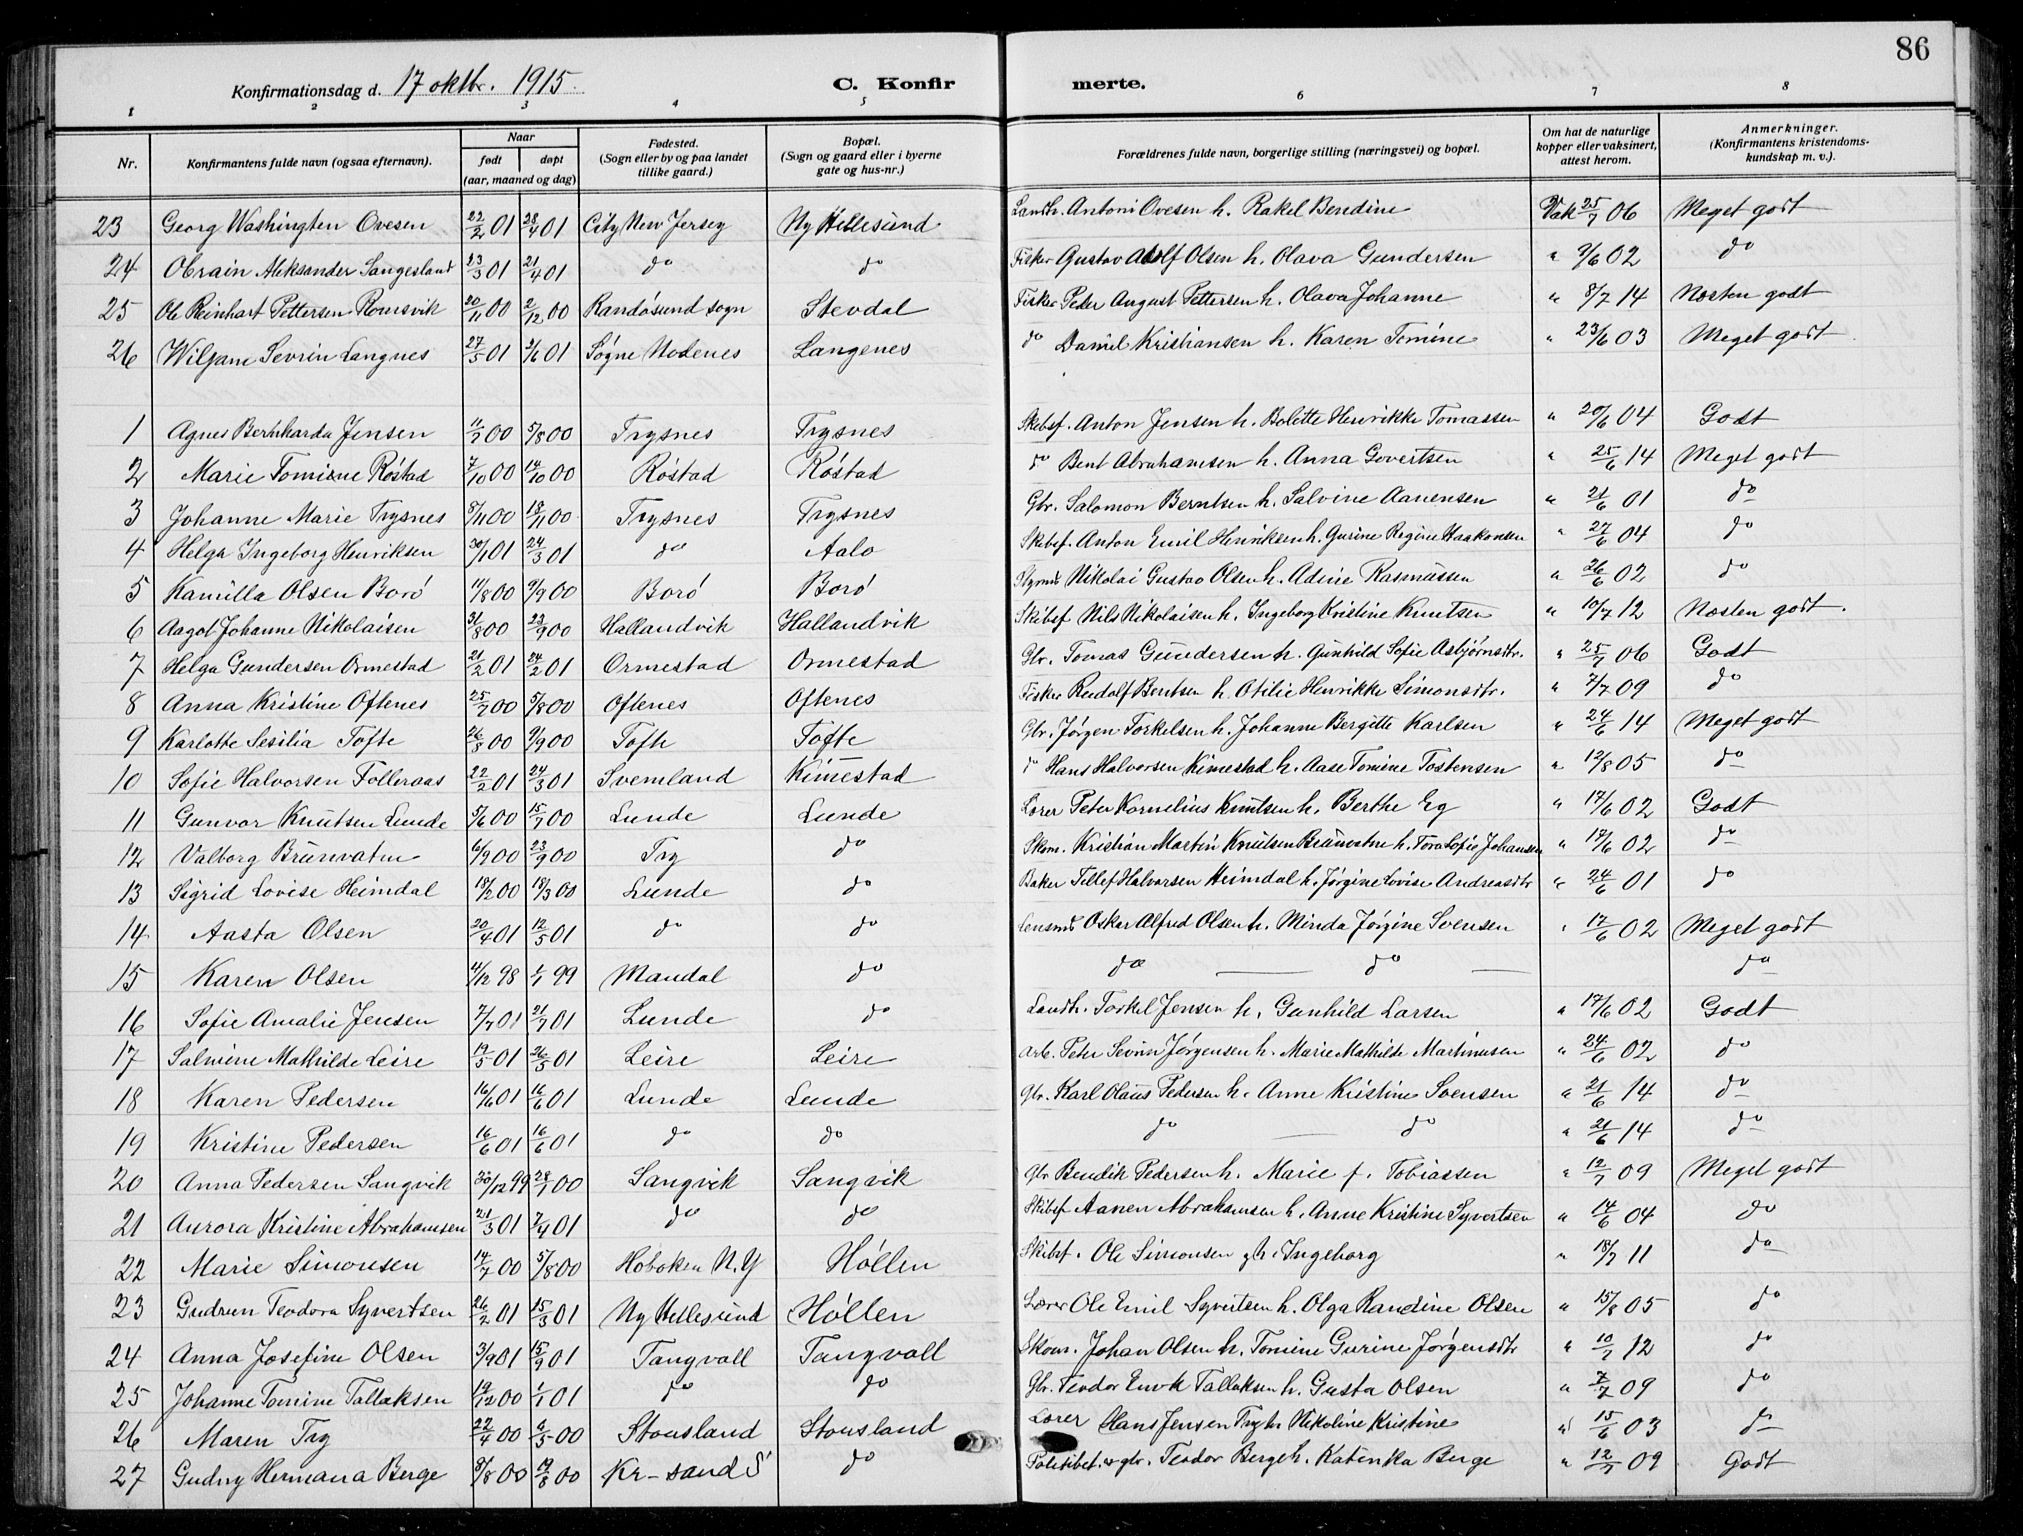 86
Konfirmationsdag d. 17 oktbr. 1915. C. Konfirmerte.
1 2 3 4 5 6 7 8
Nr. Konfirmantens fulde navn (ogsaa efternavn). Naar født døpt (aar, maaned og dag) Fødested. (Sogn eller by og paa landet tillike gaard.) Bopæl. (Sogn og gaard eller i byerne gate og hus-nr.) Forældrenes fulde navn, borgerlige stilling (næringsvei) og bopæl. Om hat de naturlige kopper eller vaksinert, attest herom. Anmerkninger. (Konfirmantens kristendomskundskap m. v.).
23 Georg Washington Ovesen 22/2 01 28/4 01 City New Jersey Ny Hellesund Landh. Antoni Ovesen h. Rakel Bendine Vak 25/7 06 Meget godt
24 Obrain Aleksander Langesland 23/3 01 21/4 01 do do Fisker Gustav Adolf Olsen h. Olava Gundersen " 9/6 02 do
25 Ole Reinhart Pettersen Romsvik 20/11 00 2/12 00 Randøsund sogn Stevdal Fisker Peter August Pettersen h. Olava Johanne " 8/7 14 Næsten godt
26 Wiljam Sevrin Langnes 27/5 01 2/6 01 Søgne Nodenes Langenes do Daniel Kristiansen h. Karen Tomine " 23/6 03 Meget godt
1 Agnes Bernharda Jensen 11/7 00 5/8 00 Trysnes Trysnes Skibsf. Anton Jensen h. Bolette Henrikke Tomassen " 20/6 04 Godt
2 Marie Tomine Røstad 7/10 00 14/10 00 Røstad Røstad do Bent Abrahamsen h. Anna Govertsen " 25/6 14 Meget godt
3 Johanne Marie Trysnes 8/11 00 18/11 00 Trysnes Trysnes Gbr. Salomon Berntsen h. Salvine Aanensen " 21/6 01 do
4 Helga Ingeborg Henriksen 30/1 01 24/3 01 do Aalo Skibsf. Anton Emil Henriksen h. Gurine Regine Haakonsen " 27/6 04 do
5 Kamilla Olsen Borø 11/8 00 9/9 00 Borø Borø Styrmd Nikolai Gustav Olsen h. Adine Rasmussen " 26/6 02 do
6 Aagot Johanne Nikolaisen 31/8 00 23/9 00 Hallandvik Hallandvik Skibsf Nils Nikolaisen h. Ingeborg Kristine Knutsen " 10/7 12 Næsten godt.
7 Helga Gundersen Ormestad 21/2 01 24/2 01 Ormestad Ormestad Gbr. Tomas Gundersen h. Gunhild Sofie Asbjørnsdtr. " 25/7 06 Godt
8 Anna Kristine Oftenes 25/7 00 5/8 00 Oftenes Oftenes Fisker Rudolf Berntsen h. Otilie Henrikke Simonsdtr. " 7/7 09 do
9 Karlotte Sesilia Tofte 26/8 00 9/9 00 Tofte Tofte Gbr. Jørgen Torkelsen h. Johanne Bergitte Karlsen " 24/6 14 Meget godt
10 Sofie Halvorsen Folleraas 22/2 01 24/3 01 Svemland Kimestad do Hans Halvorsen Kimestad h. Aase Tomine Tostensen " 12/8 05 do
11 Gunvor Knutsen Lunde 5/6 00 15/7 00 Lunde Lunde Lærer Peter Kornelius Knutsen h. Berthe Eg " 17/6 02 Godt
12 Valborg Brunvatne 6/9 00 23/9 00 Try do Skom. Kristian Martin Knutsen Brunvatne h. Tora Sofie Johansen " 17/6 02 do
13 Sigrid Lovise Heimdal 18/2 00 18/3 00 Lunde do Baker Tellef Halvorsen Heimdal h. Jørgine Lovise Andreasdtr " 24/6 01 do
14 Aasta Olsen 20/4 01 12/5 01 do do Lensmd Oskar Alfred Olsen h. Minda Jørgine Svensen " 17/6 02 Meget godt
15 Karen Olsen 4/12 98 1/1 99 Mandal do do do do
16 Sofie Amalie Jensen 7/7 01 21/7 01 Lunde do Landh. Torkel Jensen h. Gunhild Larsen " 17/6 02 Godt
17 Salmine Mathilde Leire 19/5 01 26/5 01 Leire Leire Arb. Peter Sevrin Jørgensen h. Marie Mathilde Martinusen " 24/6 02 do
18 Karen Pedersen 16/6 01 16/6 01 Lunde Lunde Gbr. Karl Olaus Pedersen h. Anne Kristine Svensen " 21/6 14 do
19 Kristine Pedersen 16/6 01 16/6 01 do do do do " 21/6 14 do
20 Anna Pedersen Sangvik 30/12 99 28/1 00 Sangvik Sangvik Gbr Bendik Pedersen h. Marie f. Tobiassen " 12/7 09 Meget godt
21 Aurora Kristine Abrahamsen 21/3 01 7/4 01 do do Skibsf Aanen Abrahamsen h. Anne Kristine Syvertsen " 14/6 04 do
22 Marie Simonsen 14/7 00 5/8 00 Hoboken N.Y Høllen Skibsf. Ole Simonsen g h. Ingeborg " 18/7 11 do
23 Gudrun Teodora Syvertsen 26/2 01 15/3 01 Ny Hellesund Høllen Lærer Ole Emil Syvertsen h. Olga Randine Olsen " 15/8 05 do
24 Anna Josefine Olsen 3/9 01 15/9 01 Tangvall Tangvall Skom. Johan Olsen h. Tomine Gurine Jørgensdtr " 10/7 12 do
25 Johanne Tomine Tallaksen 19/12 00 1/1 01 do do Gbr. Teodor Enok Tallaksen h. Gusta Olsen " 7/7 09 do
26 Maren Try 22/4 00 6/5 00 Stousland Stousland Lærer Hans Jensen Try h. Nikoline Kristine " 15/6 03 do
27 Gudny Hermana Berge 8/8 00 19/8 00 Kr-sand S do Politibet. & gbr. Teodor Berge h. Katinka Berge " 12/7 09 Godt